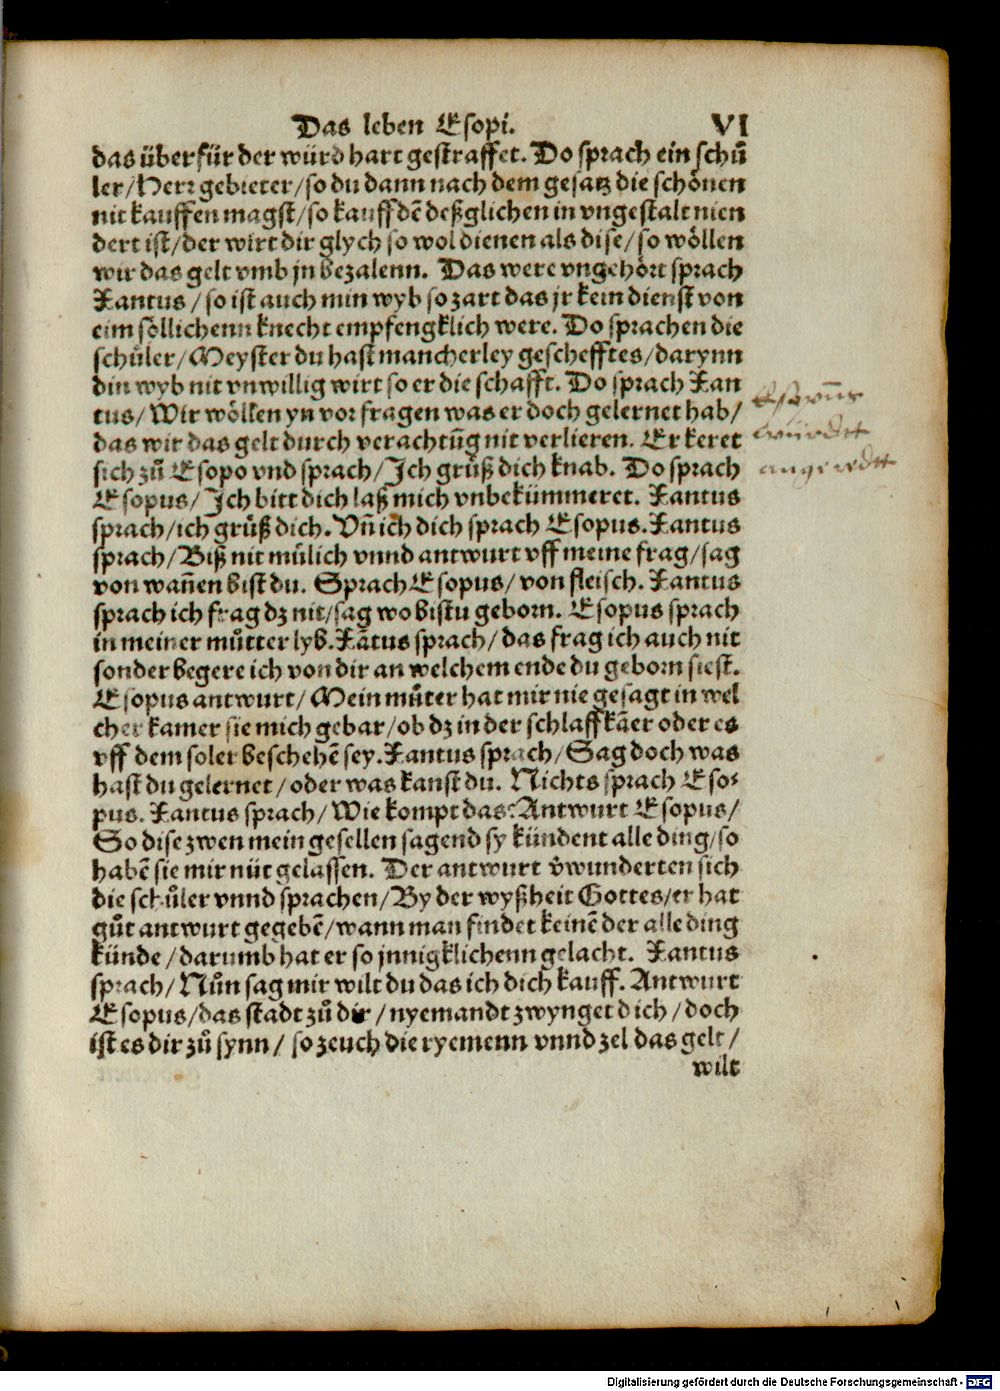 Das leben Esopi. VI
das überfür der würd hart gestraffet. Do sprach ein schů̄
ler/Herr gebieter/so du dann nach dem gesatz die schönen
nit kauffen magst/so kauff dē deßglichen in vngestalt nien
dert ist/der wirt dir glych so wol dienen als dise/so wöllen
wir das gelt vmb jn bezalenn. Das were vngehört sprach
Xantus/so ist auch min wyb so zart das jr kein dienst von
eim söllichenn knecht empfengklich were. Do sprachen die
schůler/Meyster du hast mancherley geschefftes/darynn
din wyb nit vnwillig wirt so er die schafft. Do sprach Xan
tus/Wir wöllen yn vor fragen was er doch gelernet hab/
das wir das gelt durch verachtūg nit verlieren. Er keret
sich zů Esopo vnd sprach/Ich grůß dich knab. Do sprach
Esopus/Ich bitt dich laß mich vnbekümmeret. Xantus
sprach/ich grůß dich. Vñ ich dich sprach Esopus. Xantus
sprach/Biß nit můlich vnnd antwurt vff meine frag/sag
von wañen bist du. Sprach Esopus/von fleisch. Xantus
sprach ich frag dz nit/sag wo bistu geborn. Esopus sprach
in meiner můtter lyb. Xātus sprach/das frag ich auch nit
sonder begere ich von dir an welchem ende du geborn siest.
Esopus antwurt/Mein můter hat mir nie gesagt in wel
cher kamer sie mich gebar/ob dz in der schlaffkāer oder es
vff dem soler beschehē sey. Xantus sprach/Sag doch was
hast du gelernet/oder was kanst du. Nichts sprach Eso-
pus. Xantus sprach/Wie kompt das? Antwurt Esopus/
So dise zwen mein gesellen sagend sy kündent alle ding/so
habē sie mir nüt gelassen. Der antwurt v̄wunderten sich
die schůler vnnd sprachen/By der wyßheit Gottes/er hat
gůt antwurt gegebē/wann man findet keinē der alle ding
künde/darumb hat er so jnnigklichenn gelacht. Xantus
sprach/Nůn sag mir wilt du das ich dich kauff. Antwurt
Esopus/das stadt zů dir/nyemandt zwynget dich/doch
ist es dir zů synn/so zeuch die ryemenn vnnd zel das gelt/
wilt
Esopus
würdt
angeredtt
Digitalisierung gefördert durch die Deutsche Forschungsgemeinschaft - DFG